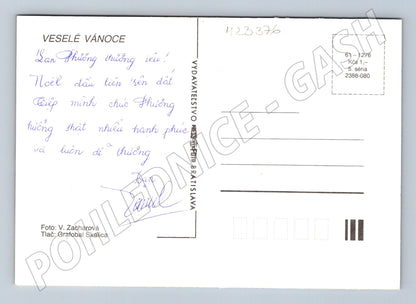 VESELÉ VÁNOCE
423376
Lan Phương thương yêu!
Noël đầu tiên trên đất
tiệp mình chúc Phương
hưởng thật nhiều hạnh phúc
và luôn dễ thương
Bạn
61-1276
Kčs 1,-
5. séria
2388-080
VYDAVATEĽSTVO
BRATISLAVA
Foto: V. Zachárová
Tlač: Grafobal Skalica
POHLEDNICE - GASH